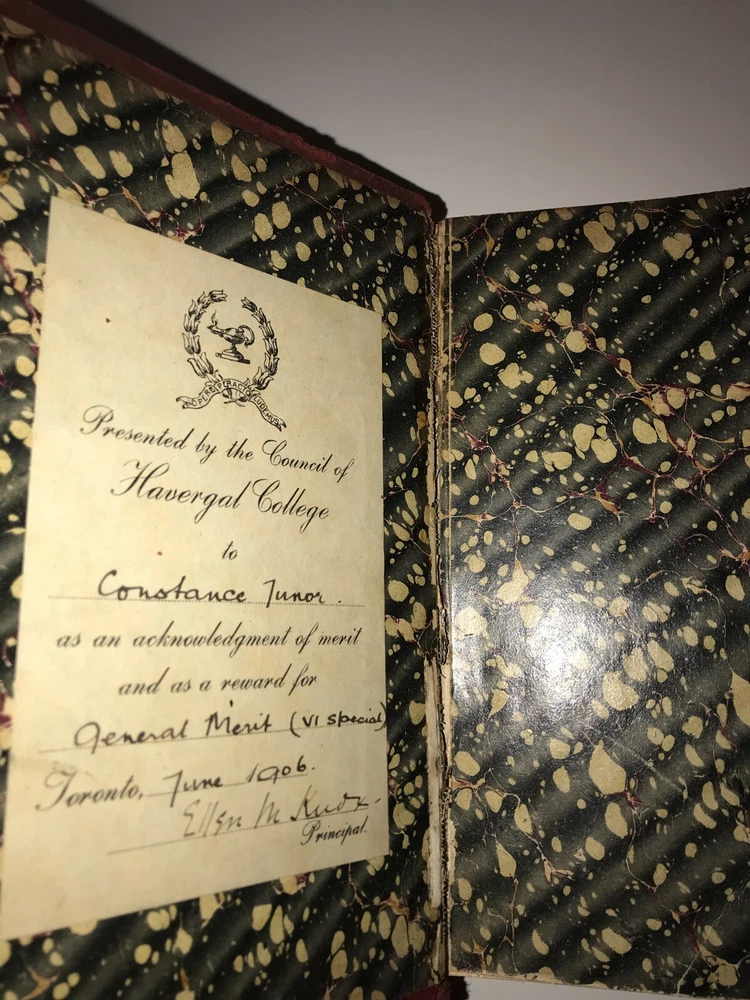 OPERE PERACTO LUDEMUS
Presented by the Council of
Havergal College
to
Constance Junor.
as an acknowledgment of merit
and as a reward for
General Merit (VI special)
Toronto, June 1906.
Ellen M. Knox.
Principal.